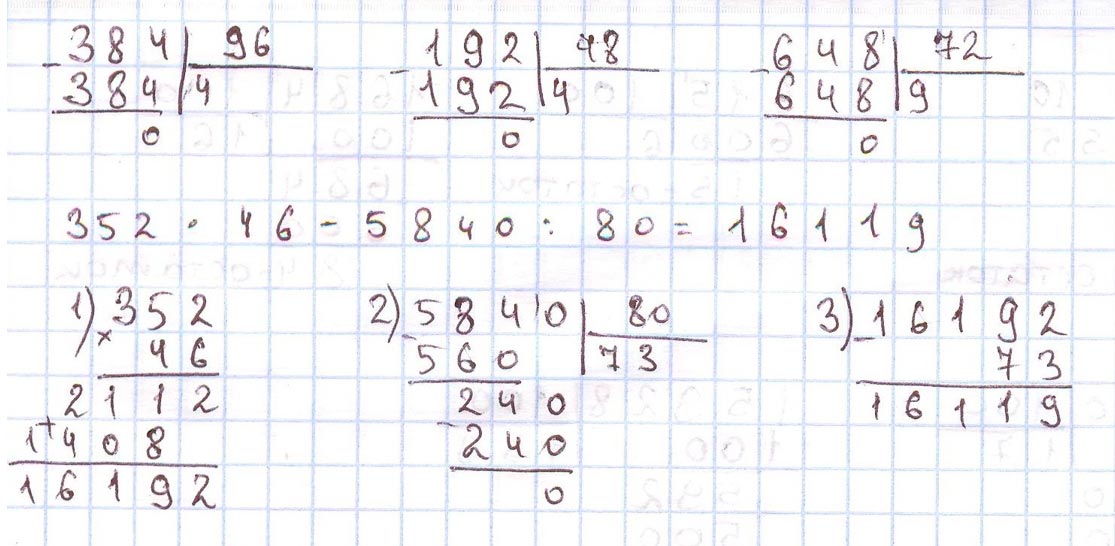 384 | 96   192 | 48   648 | 72
- 384 | 4   - 192 | 4   - 648 | 9
0   0   0
352 · 46 - 5840 : 80 = 16119
1) 352   2) 5840 | 80   3) 16192
× 46   - 560 | 73   - 73
2112   240   16119
+ 1408   - 240
16192   0